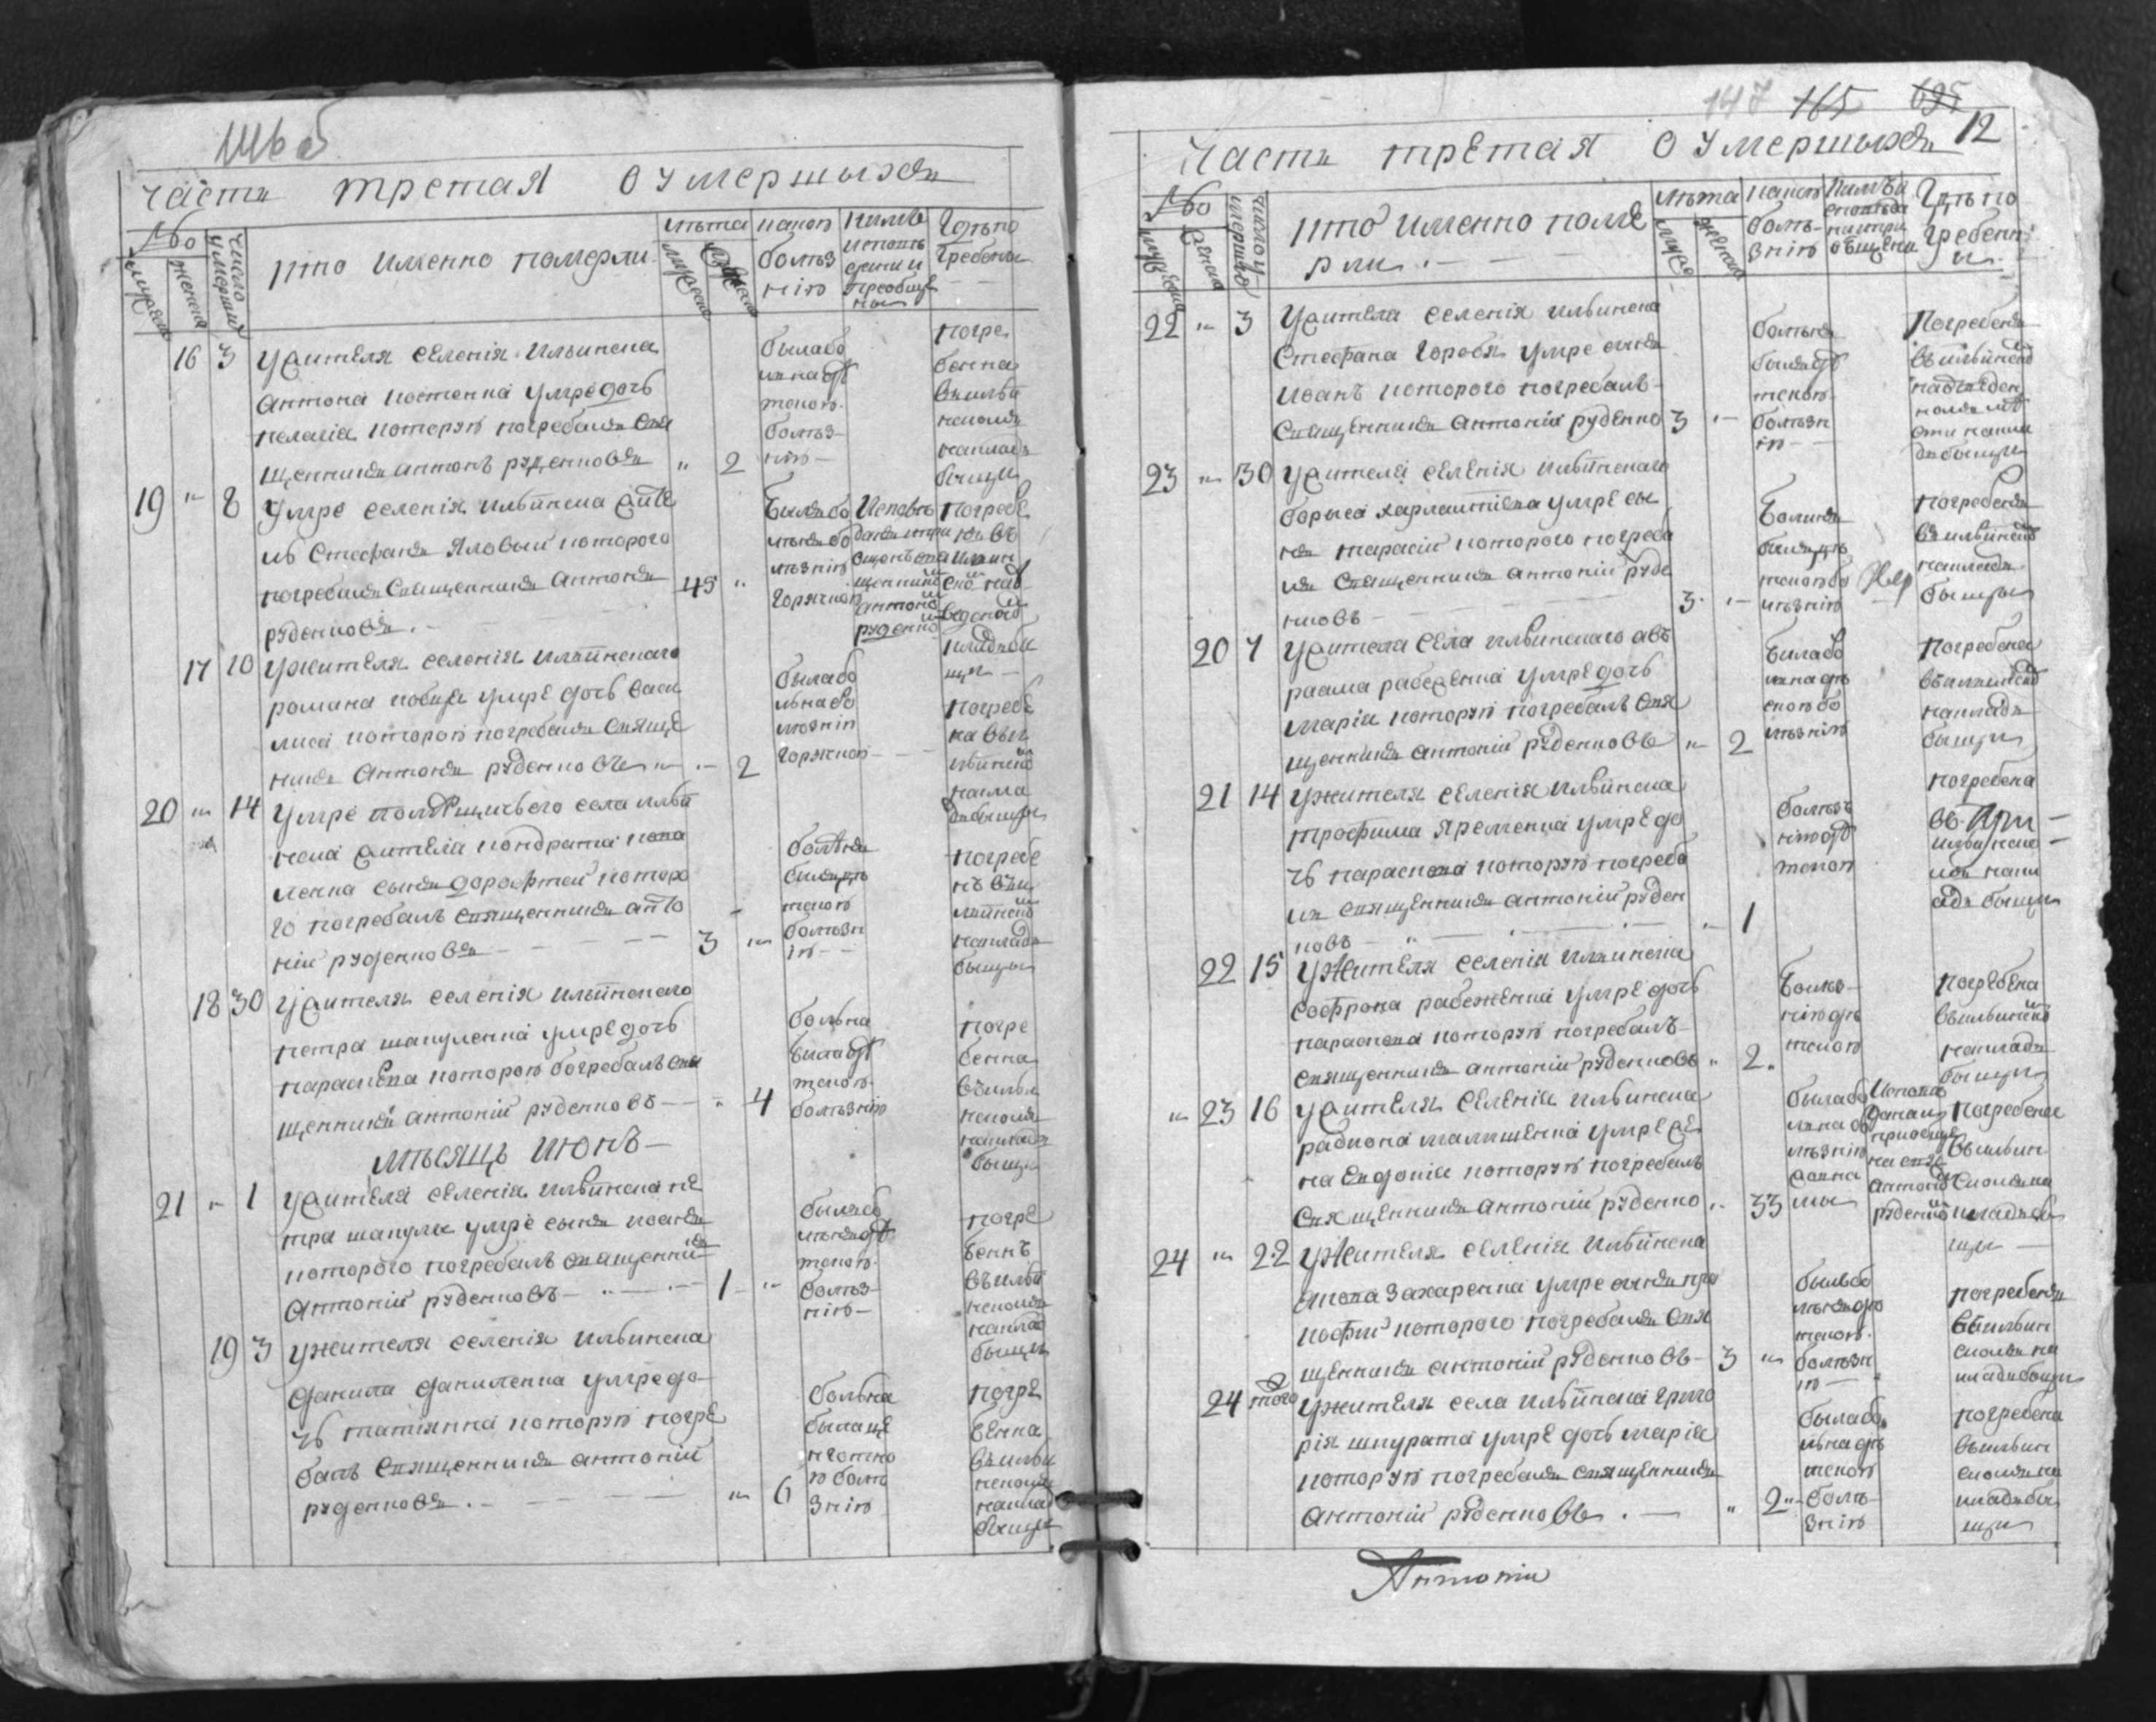 часть третая о умершыхъ
№
мужеска
женска
число умершихъ
кто именно померли
лѣта
мужеска
женска
какою болѣзнію
кѣмъ исповѣданы и приобщены
Гдѣ погребены
16 3 Ужителя селенія Ильинска
Антона костенка умре дочь
пелагіа которую погребалъ свя
щенникъ антонъ руденковъ " 2
была бо
льна дѣ
тскою
болѣз
нію
погре
бенна
въ ильи
нскомъ
на клад
бищи
19 " 8 Умре селенія ильинска жите
ль Стефанъ Яловый которого
погребалъ Священникъ антонъ 45 "
руденковъ
Былъ бо
лѣнъ бо
лѣзнію
горячкою
Исповѣ
данъ и при
общенъ свя
щенникомъ
антоніемъ
руденко
погребе
нъ въ
ильин
ской
кладби
щи
17 10 Ужителя селенія ильинского
романа кобца умре дочь васи
лиса которою погребалъ свяще
никъ Антонъ руденковъ " 2
была бо
льна бо
лѣзнію
горячкою
погребе
на въ и
льинской
на кла
дъбищи
20 " 14 Умре помѣщичьего села ильи
нска жителя кондрата кова
ленка сынъ дорофтей которо
го погребалъ священникъ анто
ній руденковъ 3 "
болѣнъ
былъ дѣ
тскою
болѣзн
ію
погребе
нъ въ и
льинской
на кладъ
бищи
18 30 Ужителя селенія ильинского
петра шапуленка умре дочь
параскева которою погребалъ свя
щенникъ антоній руденковъ " 4
больна
была дѣ
тскою
болѣзнію
погре
бенна
въ ильи
нскомъ
на кладъ
бищи
мѣсяцъ июнь
21 " 1 Ужителя селенія ильинска пе
тра шапули умре сынъ иоанъ
которого погребалъ священникъ
Антоній руденковъ 1 "
былъ бо
лѣнъ дѣ
тскою
болѣз
нію
погре
беннъ
въ ильи
нскомъ
на клад
бищи
19 3 ужителя селенія ильинска
Данила даниленка умре до
чь татіянна которую погре
балъ священникъ антоній
руденковъ " 6
больна
была
болѣ
знію
погре
бенна
въ ильи
нскомъ
на клад
бищи
147 165 695
12
Часть третая о умершыхъ
№
мужеска
женска
число умершихъ
кто именно поме
рли
лѣта
мужеска
женска
какою болѣзнію
кѣмъ исповѣданы и приобщены
Гдѣ погребены
22 " 3 Ужителя селенія ильинска
Стефана Горобя умре сынъ
иоанъ которого погребалъ
священникъ антоній руденко 3 "
больнъ
былъ дѣ
тскою
болѣзн
ію
Погребенъ
въ ильинской
23 " 30 Ужителя селенія ильинского
бориса харлантіева умре сы
нъ тарасій которого погреба
лъ священникъ антоній руде
нковъ 3 "
Больнъ
былъ дѣ
тскою бо
лѣзнію
погребенъ
въ ильинской
на кладъ
бищи
20 7 Ужителя села ильинского авъ
раама рабеженка умре дочь
марія которую погребалъ свя
щенникъ антоній руденковъ " 2
Была бо
льна дѣ
скою бо
лѣзнію
погребена
въ ильинской
на кладъ
бищи
21 14 Ужителя селенія ильинска
трофима Яременка умре до
чь параскева которую погреба
лъ священникъ антоній руден
ковъ " 1
болѣз
нію дѣ
тскою
погребена
въ при
ильинско
мъ на кл
адъ бищи
22 15 УЖителя селенія ильинска
софрона рабеженка умре дочь
параскева которую погребалъ
священникъ антоній руденковъ " 2.
Болѣз
нію дѣ
тскою
погребена
въ ильинской
на кладъ
бищи
" 23 16 Ужителя селенія ильинска
радиона малишенка умре же
на Евдокія которую погребалъ
Священникъ антоній руденко " 33
была бо
льна бо
лѣзнію
Исповѣ
дана и
приобще
на свя
антоній
руденко
погребена
въ ильин
скомъ на
кладъби
щи
24 " 22 ужителя селенія ильинска
захаренка умре сынъ про
кофій которого погребалъ свя
щенникъ антоній руденковъ 3 "
былъ бо
лѣнъ дѣ
тскою
болѣзн
ію
погребенъ
въ ильин
скомъ на
кладъбищи
24 того ужителя села ильинска григо
рія шкурата умре дочь марія
которую погребалъ священникъ
антоній руденковъ " 2
была бо
льна дѣ
тскою
болѣ
знію
погребена
въ ильин
скомъ на
кладъби
щи
Антоній